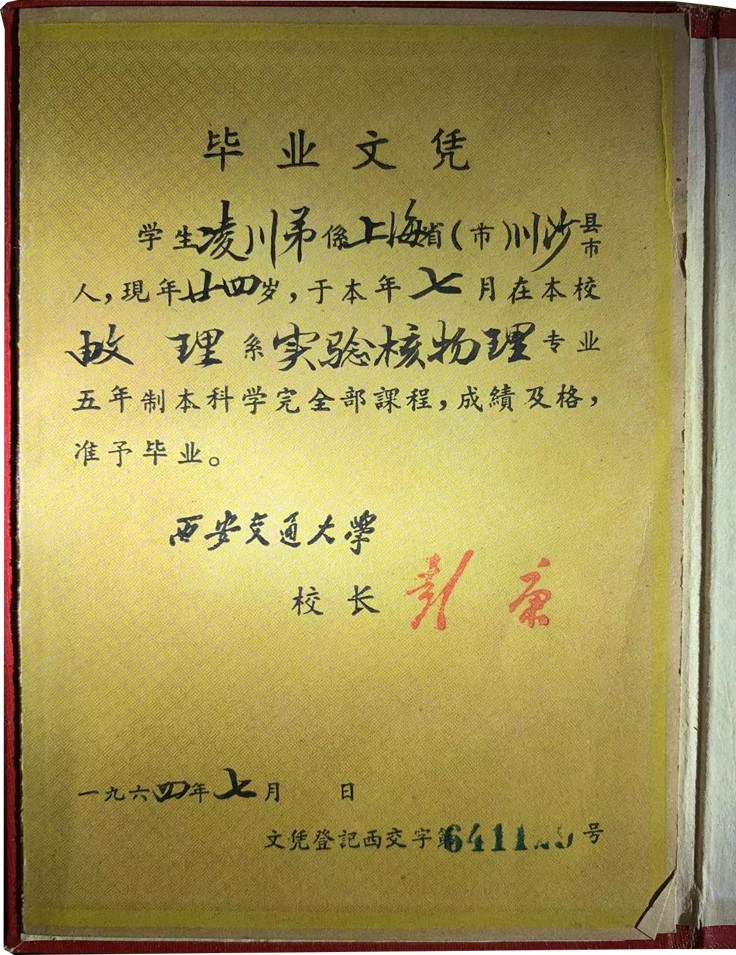 毕业文凭
学生凌川弟係上海省(市)川沙县市
人,現年廿四岁,于本年七月在本校
理系实驗核物理专业
五年制本科学完全部課程,成績及格,
准予毕业。
西安交通大學
校长 彭康
一九六四年七月 日
文凭登記西交字第号